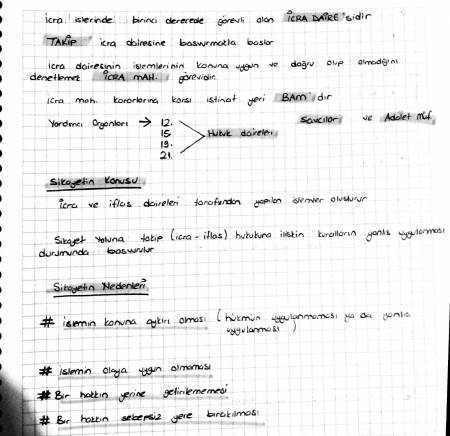 icra islerinde birinci derecede görevli olan İCRA DAİRE'sidir
TAKİP icra dairesine basvurmakla baslar
icra dairesinin islemlerinin konuna uygun ve doğru olup olmadığını
denetlemek İCRA MAH. görevidir.
icra mah. kararlarına karsı istinaf yeri BAM'dır
Yardımcı Organları → 12. 15. 19. 21. Hukuk daireleri, Savcılar ve Adalet Müf.
Sikayetin Konusu
icra ve iflas daireleri tarafından yapılan islemler olusturur
Sikayet Yoluna takip (icra - iflas) hukukuna iliskin kuralların yanlıs uygulanması
durumunda basvurulur
Sikayetin Nedenleri
# islemin konuna aykırı olması (hükmün uygulanmaması ya da yanlıs
uygulanması)
# islemin olaya uygun olmaması
# Bir hakkın yerine getirilememesi
# Bir hakkın sebepsiz yere bırakılması